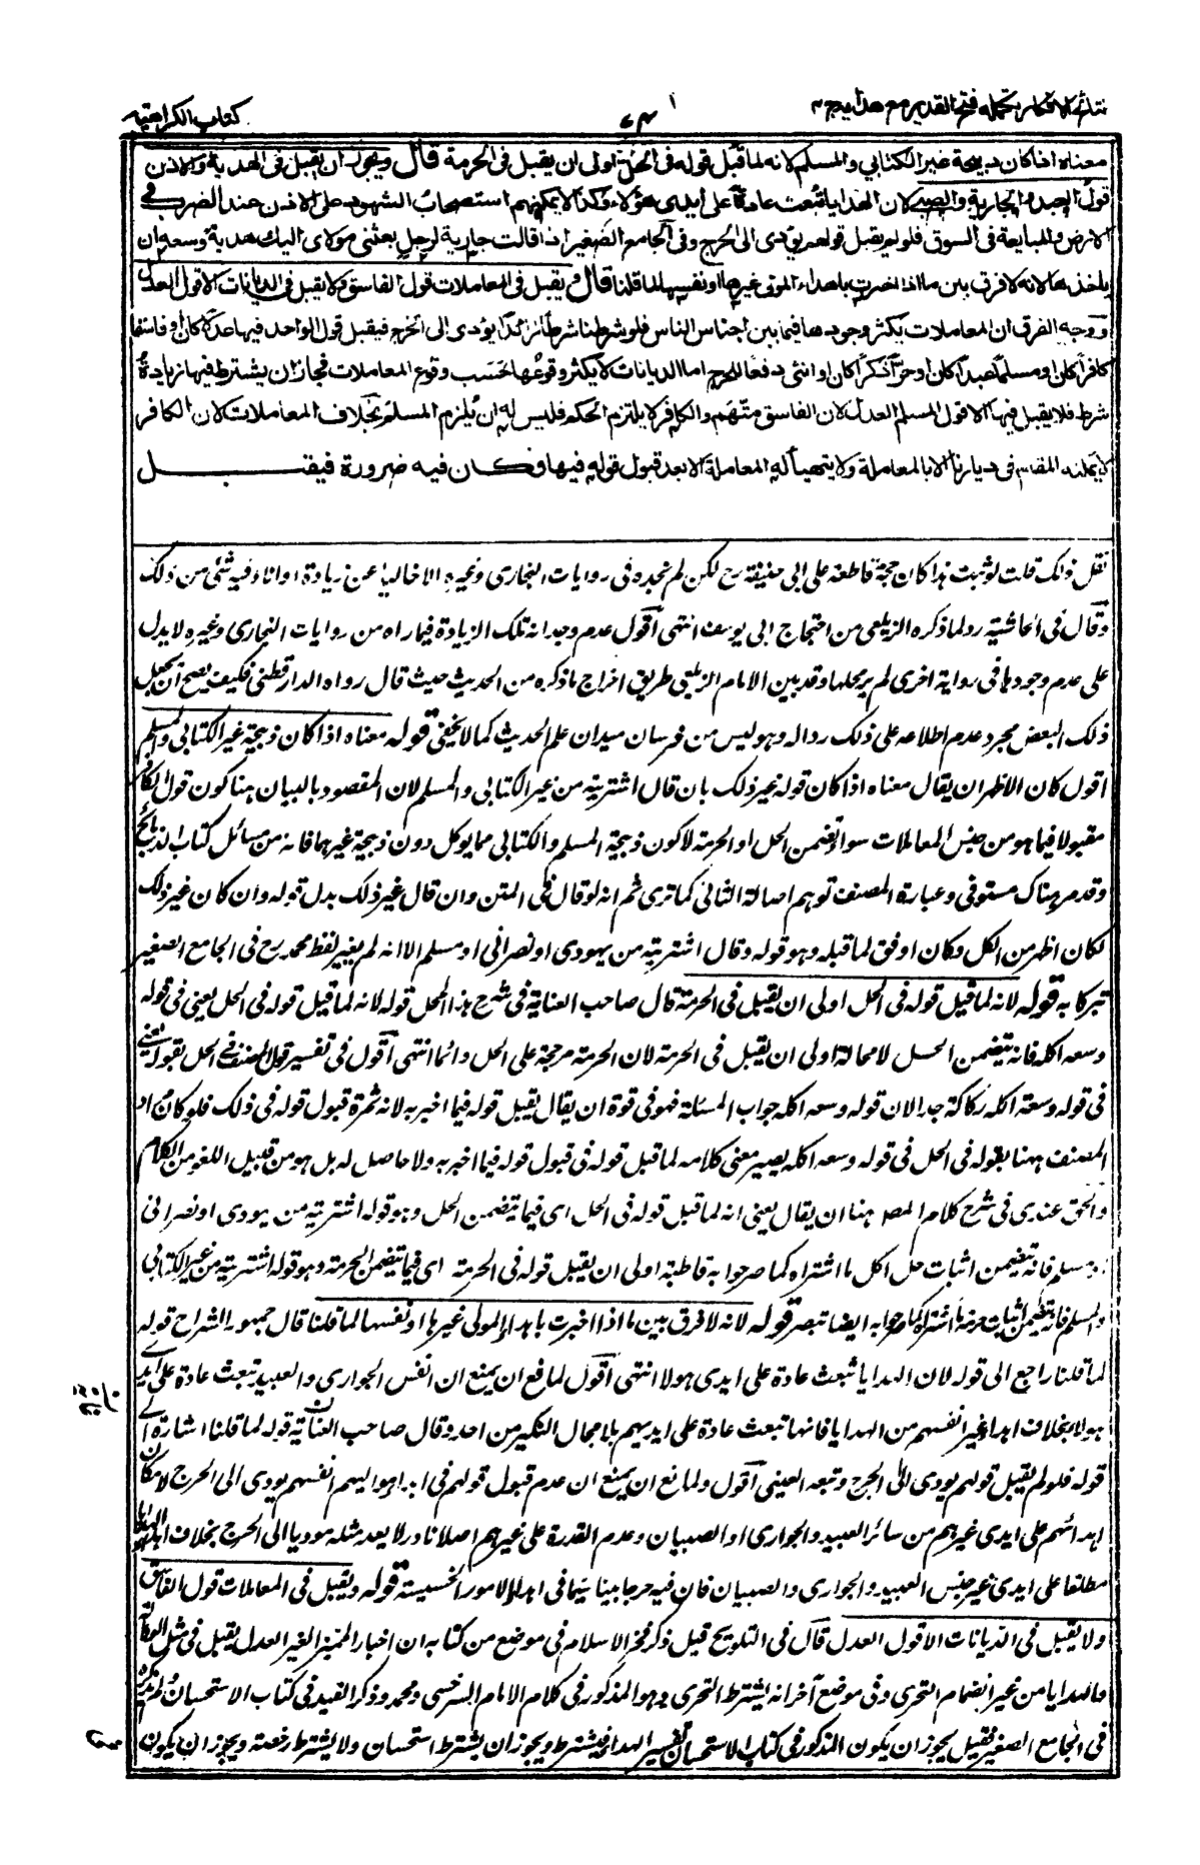 نتائج الافكار تكملہ فتح القدير مع هدايہ ج ٤
كتاب الكراهية
معناه اذا كان ذبيحة غير الكتابي والمسلم لانه لما قبل قوله في الحل اولى ان يقبل في الحرمة قال ويجوز ان يقبل في الهدية والاذن
قول العبد والجارية والصبي لان الهدايا تبعث عادة على ايدي هؤلاء وكذا لا يمكنهم استصحاب الشهود على الاذن عند الضرب في
الارض والمبايعة في السوق فلو لم يقبل قولهم يؤدى الى الحرج وفي الجامع الصغير اذا قالت جارية لرجل بعثني مولاى اليك هدية وسعه ان
ياخذها لانه لا فرق بين ما اذا اخبرت باهداء المولى غيرها او نفسها لما قلنا قال ويقبل في المعاملات قول الفاسق ولا يقبل في الديانات الا قول العدل
ووجه الفرق ان المعاملات يكثر وجودها فيما بين اجناس الناس فلو شرطنا شرطا زائدا يؤدى الى الحرج فيقبل قول الواحد فيها عدلا كان او فاسقا
كافرا كان او مسلما عبدا كان او حرا ذكرا كان او انثى دفعا للحرج اما الديانات لا يكثر وقوعها حسب وقوع المعاملات فجاز ان يشترط فيها زيادة
شرط فلا يقبل فيها الا قول المسلم العدل لان الفاسق متهم والكافر لا يلتزم الحكم فليس له ان يلزم المسلم بخلاف المعاملات لان الكافر
لا يمكنه المقام في ديارنا الا بالمعاملة ولا يتهيأ له المعاملة الا بعد قبول قوله فيها فكان فيه ضرورة فيقبل
نقل ذلك قلت لو ثبت هذا كان حجة قاطعة على ابي حنيفة رح لكن لم نجده في روايات البخارى وغيره الا خاليا عن زيادة او اناء فيه شئ من ذلك
وقال في الحاشية رد لما ذكره الزيلعي من احتجاج ابي يوسف انتهى اقول عدم وجدانه تلك الزيادة فيما راه من روايات البخارى وغيره لا يدل
على عدم وجودها في رواية اخرى لم ير محلها وقد بين الامام الزيلعي طريق اخراج ما ذكره من الحديث حيث قال رواه الدارقطني فكيف يصح ان يجعل
ذلك البعض مجرد عدم اطلاعه على ذلك ردا له وهو ليس من فرسان ميدان علم الحديث كما لا يخفى قوله معناه اذا كان ذبيحة غير الكتابي والمسلم
اقول كان الاظهر ان يقال معناه اذا كان قوله غير ذلك بان قال اشتريته من غير الكتابي والمسلم لان المقصود بالبيان هنا كون قول الكافر
مقبولا فيما هو من جنس المعاملات سواء تضمن الحل او الحرمة لا كون ذبيحة المسلم والكتابي مما يوكل دون ذبيحة غيرهما فانه من مسائل كتاب الذبائح
وقد مر هناك مستوفى وعبارة المصنف توهم اصالة الثاني كما ترى ثم انه لو قال في المتن وان قال غير ذلك بدل قوله وان كان غير ذلك
لكان اظهر من الكل وكان اوفق لما قبله وهو قوله وقال اشتريته من يهودى او نصراني او مسلم الا انه لم يغير لفظ محمد رح في الجامع الصغير
تبركا به قوله لانه لما قبل قوله في الحل اولى ان يقبل في الحرمة قال صاحب العناية في شرح هذا المحل قوله لانه لما قبل قوله في الحل يعني في قوله
وسعه اكله فانه يتضمن الحل لا محالة اولى ان يقبل في الحرمة لان الحرمة مرجحة على الحل دائما انتهى اقول في تفسير قول المصنف في الحل بقوله يعني
في قوله وسعه اكله ركاكة جدا لان قوله وسعه اكله جواب المسئلة فهو في قوة ان يقال يقبل قوله فيما اخبر به لانه ثمرة قبول قوله في ذلك فلو كان مراد
المصنف ههنا بقوله في الحل في قوله وسعه اكله يصير معنى كلامه لما قبل قوله في قبول قوله فيما اخبر به ولا حاصل له بل هو من قبيل اللغو من الكلام
والحق عندى في شرح كلام المصـ هنا ان يقال يعني انه لما قبل قوله في الحل اى فيما يتضمن الحل وهو قوله اشتريته من يهودى او نصراني
او مسلم فانه يتضمن اثبات حل اكل ما اشتراه كما صرحوا به قاطبة اولى ان يقبل قوله في الحرمة اى فيما يتضمن الحرمة وهو قوله اشتريته من غير الكتابي
والمسلم فانه يتضمن اثبات حرمة ما اشتراه كما صرحوا به ايضا تبصر قوله لانه لا فرق بين ما اذا اخبرت باهداء المولى غيرها او نفسها لما قلنا قال جمهور الشراح قوله
لما قلنا راجع الى قوله لان الهدايا تبعث عادة على ايدى هولاء انتهى اقول لمانع ان يمنع ان انفس الجوارى والعبيد تبعث عادة على ايدى
هولاء بخلاف اهداء غير انفسهم من الهدايا فانها تبعث عادة على ايديهم بلا مجال النكير من احد وقال صاحب العناية قوله لما قلنا اشارة الى
قوله فلو لم يقبل قولهم يودى الى الحرج وتبعه العيني اقول ولمانع ان يمنع ان عدم قبول قولهم في اهداء مواليهم انفسهم يودى الى الحرج لامكان
اهدائهم على ايدى غيرهم من سائر العبيد والجوارى او الصبيان وعدم القدرة على غيرهم اصلا نادر لا يعد مثله موديا الى الحرج بخلاف اهداء الهدايا
مطلقا على ايدى غير جنس العبيد والجوارى والصبيان فان فيه حرجا بينا سيما في اهداء الامور الخسيسة قوله ويقبل في المعاملات قول الفاسق
ولا يقبل في الديانات الا قول العدل قال في التلويح قيل ذكر فخر الاسلام في موضع من كتابه ان اخبار المميز الغير العدل يقبل في مثل الوكالة
والهدايا من غير انضمام التحرى وفي موضع آخر انه يشترط التحرى وهو المذكور في كلام الامام السرخسى ومحمد رح ذكر القيد في كتاب الاستحسان ولم يذكره
في الجامع الصغير فقيل يجوز ان يكون المذكور في كتاب الاستحسان تفسيرا لهذا فيشترط ويجوز ان يشترط استحسانا ولا يشترط رخصة ويجوز ان يكون